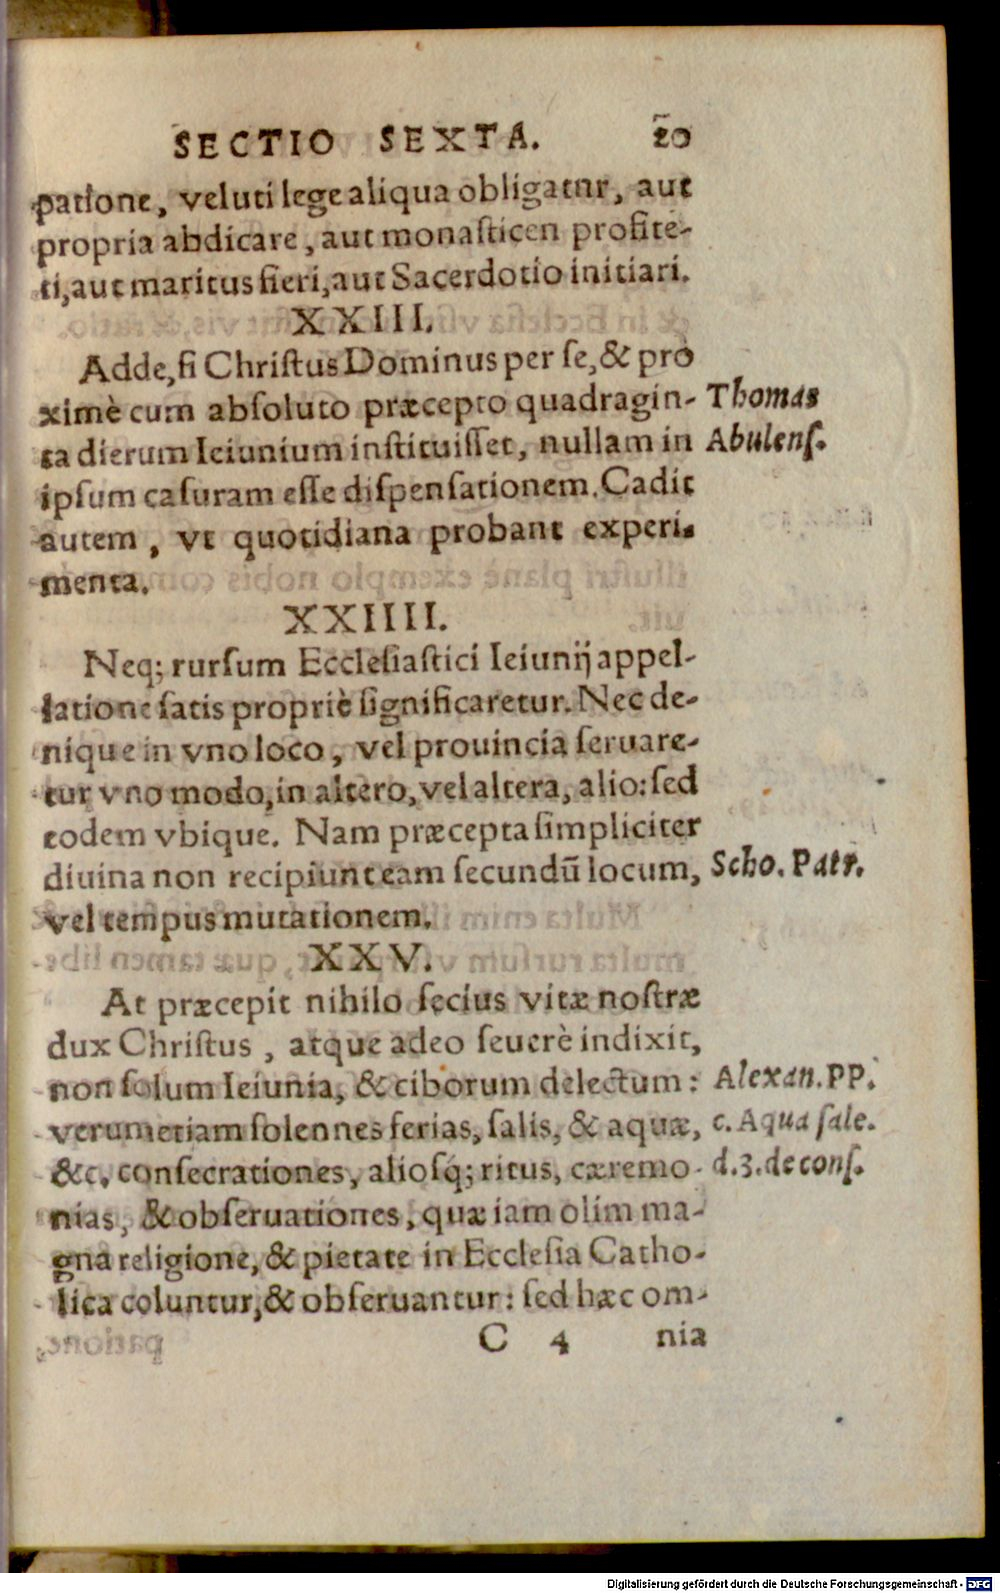 SECTIO SEXTA. 20
patione, veluti lege aliqua obligatur, aut
propria abdicare, aut monaſticen profite-
ri, aut maritus fieri, aut Sacerdotio initiari.
XXIII.
Adde, ſi Chriſtus Dominus per ſe, & pro
ximè cum abſoluto præcepto quadragin- Thomas
ta dierum Ieiunium inſtituiſſet, nullam in Abulenſ.
ipſum caſuram eſſe diſpenſationem. Cadit
autem, vt quotidiana probant experi-
menta.
XXIIII.
Neq; rurſum Eccleſiaſtici Ieiunij appel-
latione ſatis propriè ſignificaretur. Nec de-
nique in vno loco, vel prouincia ſeruare-
tur vno modo, in altero, vel altera, alio: ſed
eodem vbique. Nam præcepta ſimpliciter
diuina non recipiunt eam ſecundū locum, Scho. Patr.
vel tempus mutationem.
XXV.
At præcepit nihilo ſecius vitæ noſtræ
dux Chriſtus, atque adeo ſeuerè indixit,
non ſolum Ieiunia, & ciborum delectum: Alexan. PP.
verumetiam ſolennes ferias, ſalis, & aquæ, c. Aqua ſale.
&c. conſecrationes, alioſq; ritus, cæremo- d. 3. de conſ.
nias, & obſeruationes, quæ iam olim ma-
gna religione, & pietate in Eccleſia Catho-
lica coluntur, & obſeruantur: ſed hæc om-
C 4 nia
Digitalisierung gefördert durch die Deutsche Forschungsgemeinschaft - DFG